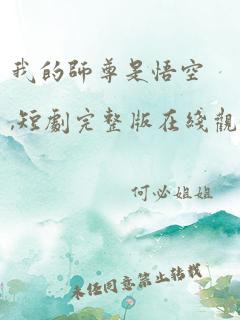 我的師尊是悟空
,短劇完整版在綫觀
何必姐姐
未经同意禁止转载